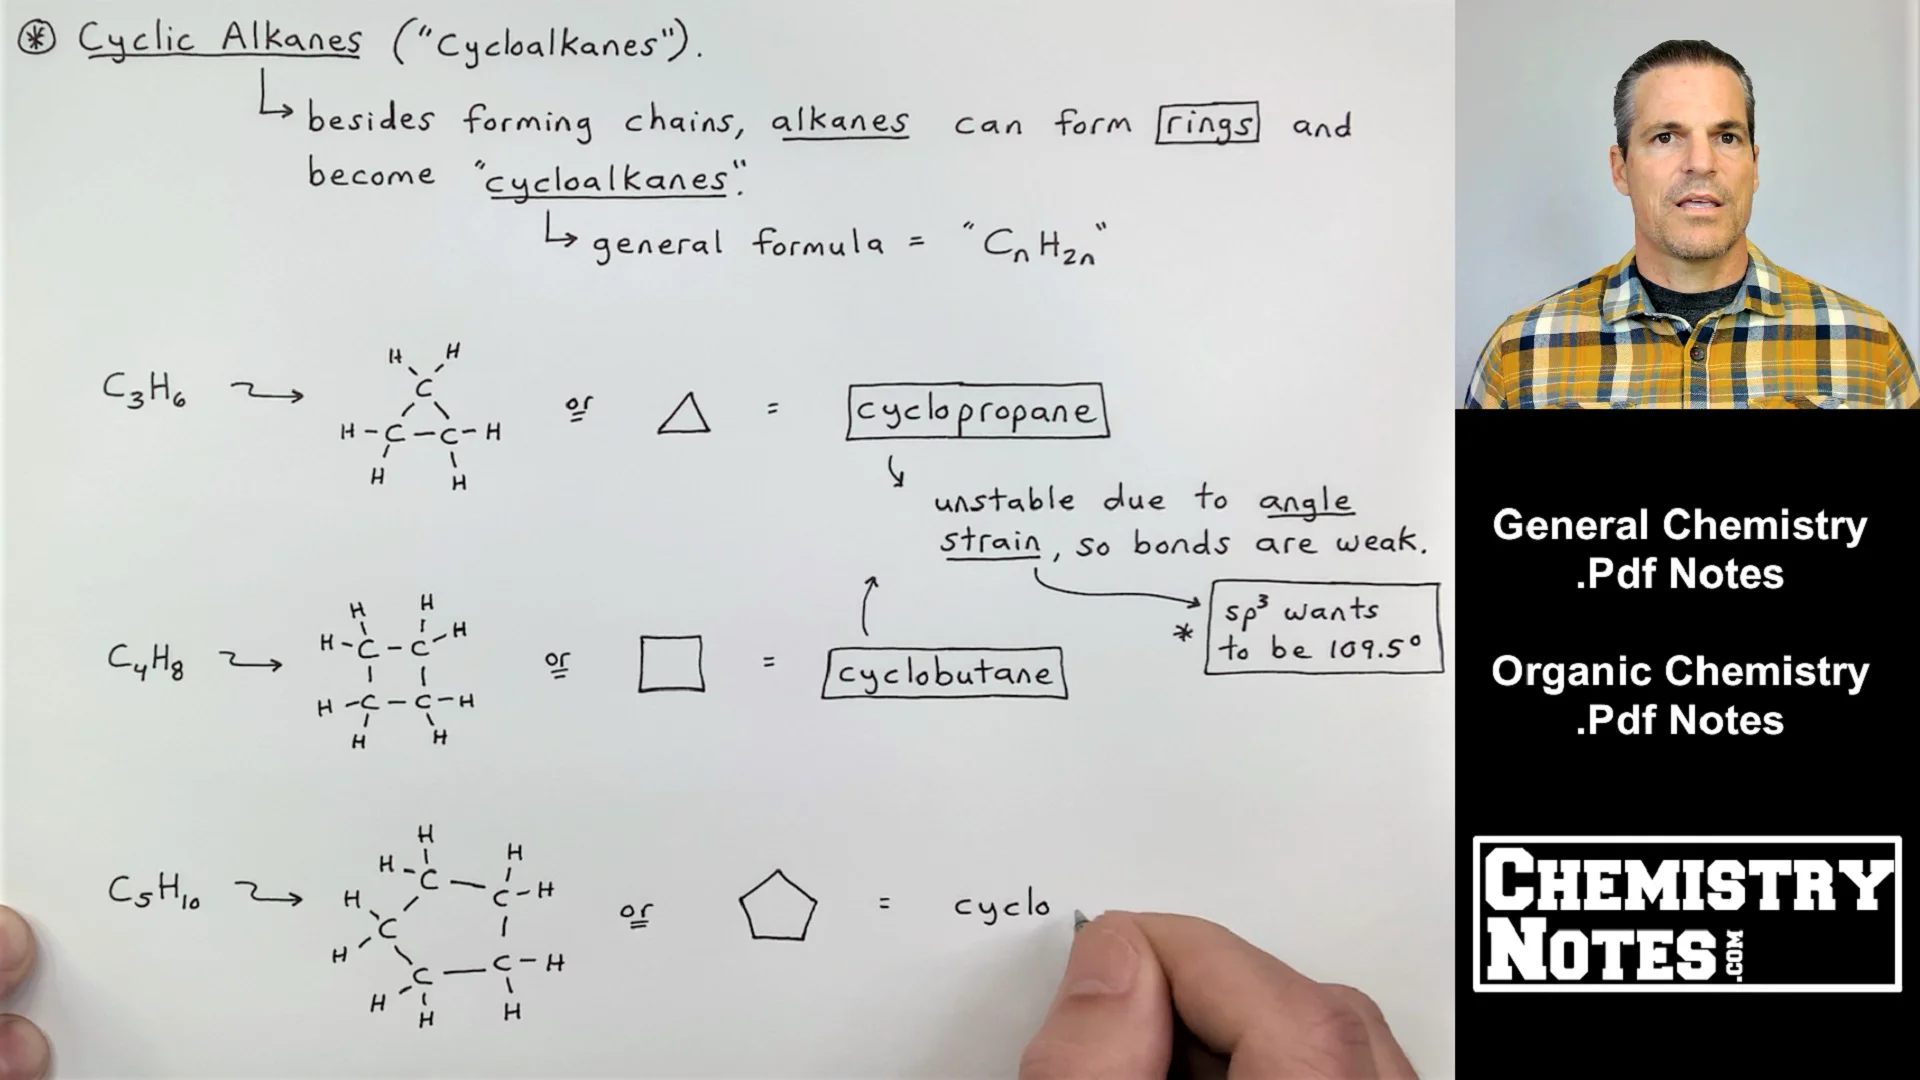 * Cyclic Alkanes ("Cycloalkanes").
besides forming chains, alkanes can form rings and
become "cycloalkanes".
general formula = "CnH2n"
H H
C
C3H6 or = cyclopropane
H-C-C-H
H H
unstable due to angle
strain, so bonds are weak.
* sp³ wants
to be 109.5°
H H
H-C-C-H
C4H8 or = cyclobutane
H-C-C-H
H H
H
H-C H
C-H
H
C5H10 C or = cyclo
H
C-C-H
H H H
General Chemistry
.Pdf Notes
Organic Chemistry
.Pdf Notes
CHEMISTRY
NOTES.COM